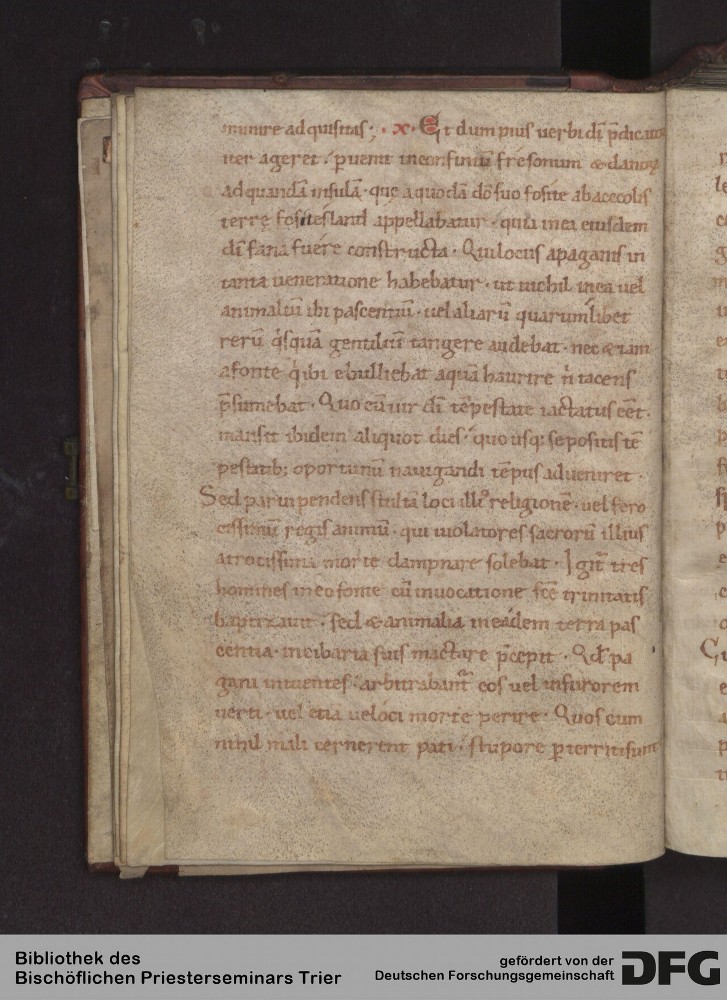 munire adquisitas; · x · Et dum pius uerbi dī p̄dicator
iter ageret · ꝑuenit inconfiniū fresonum & danoꝝ
ad quandā insulā · quę a quodā dō suo fosite ab accolis
terrę fositesland appellabatur · quia in ea eiusdem
dī fana fuere constructa · Qui locus a paganis in
tanta ueneratione habebatur · ut nichil in ea uel
animaliū ibi pascentiū · uel aliarū quarumlibet
rerū q'squā gentiliū tangere audebat · nec &iam
a fonte q' ibi ebulliebat aquā haurire n̄ tacens
p̄sumebat · Quo cū uir dī tēpestate iactatus eēt ·
mansit ibidem aliquot dies · quo usq; sepositis tē
pestatib; oportunū nauigandi tēpus adueniret ·
Sed paruipendens stultā loci illi' religionē · uel fero
cissimū regis animū · qui uiolatores sacrorū illius
atrocissima morte dampnare solebat · Igit̄ tres
homines in eo fonte cū inuocatione scē trinitatis
baptizauit · sed & animalia in eadem terra pas
centia · in cibaria suis mactare p̄cepit · Qd̄ pa
gani intuentes · arbitrabant̄ eos uel in furorem
uerti · uel etiā ueloci morte perire · Quos cum
nihil mali cernerent pati · stupore ꝑterriti sunt
Bibliothek des
Bischöflichen Priesterseminars Trier
gefördert von der
Deutschen Forschungsgemeinschaft
DFG